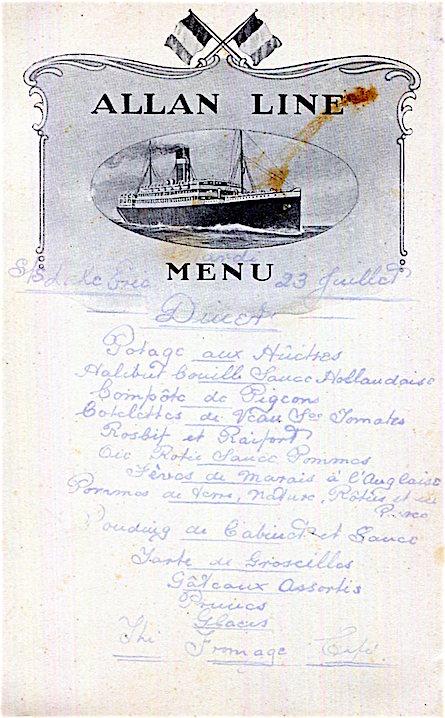 ALLAN LINE
MENU
23 Juillet
Diner
Potage aux Huîtres
Halibut Bouille Sauce Hollandaise
Compôte de Pigeons
Cotelettes de Veau Sce Tomates
Rosbif et Raifort
Oie Rotie Sauce Pommes
Fèves de Marais à l'Anglaise
Pommes de Terre, Nature, Roties et en
Purée
Pouding de Cabinet et Sauce
Tarte de Groseilles
Gâteaux Assortis
Prunes
Glaces
Thé Fromage Café